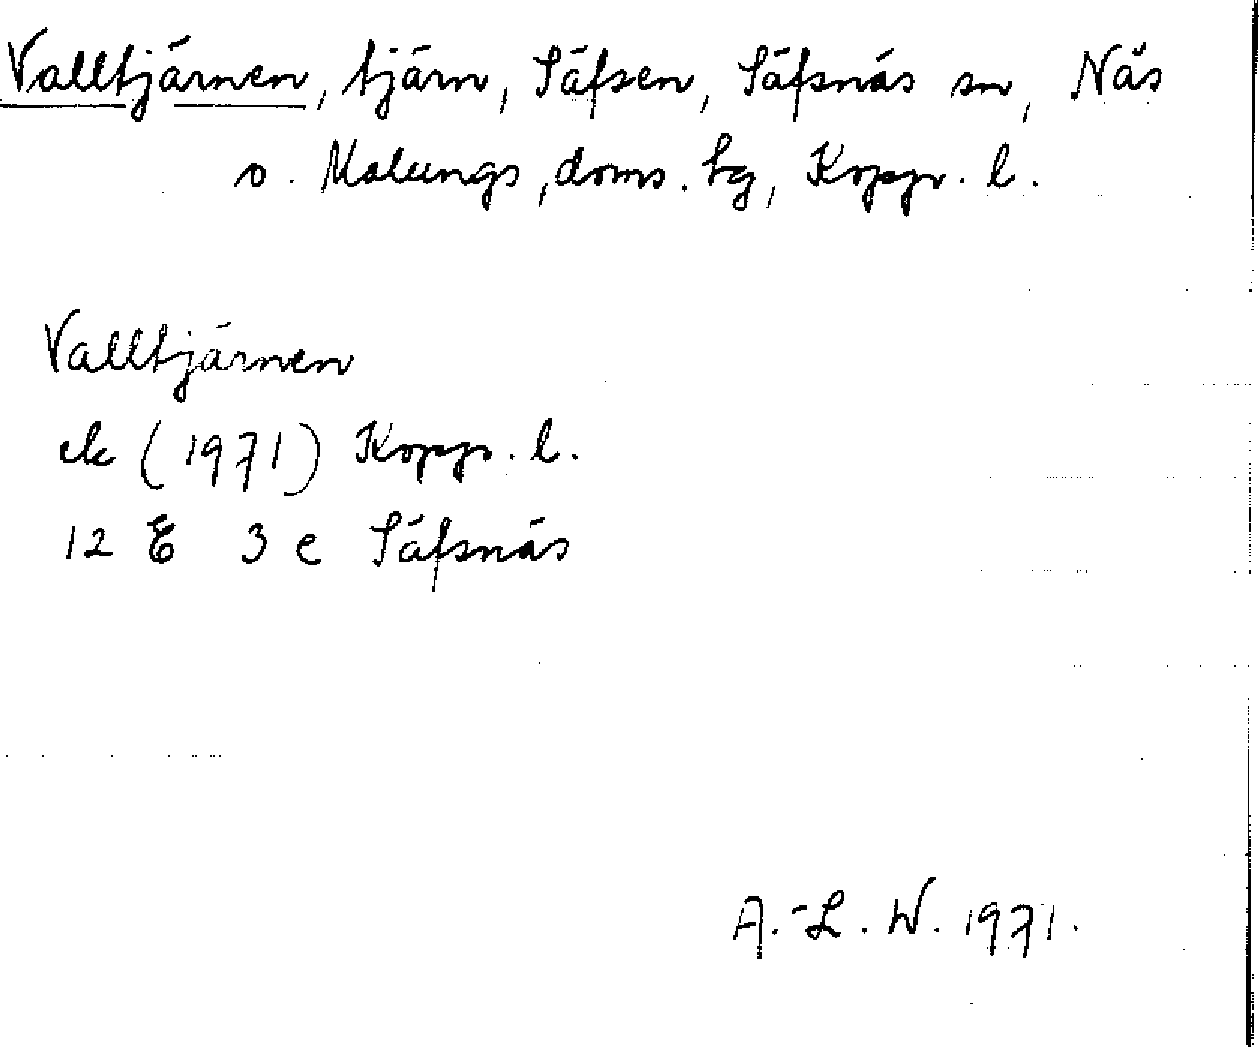 Valltjärnen, tjärn, Säfsen, Säfsnäs sn, Näs
o. Malungs, doms. tg, Koppr. l.
Valltjärnen
ek (1971) Koppr. l.
12 E 3 e Säfsnäs
A.-L. W. 1971.